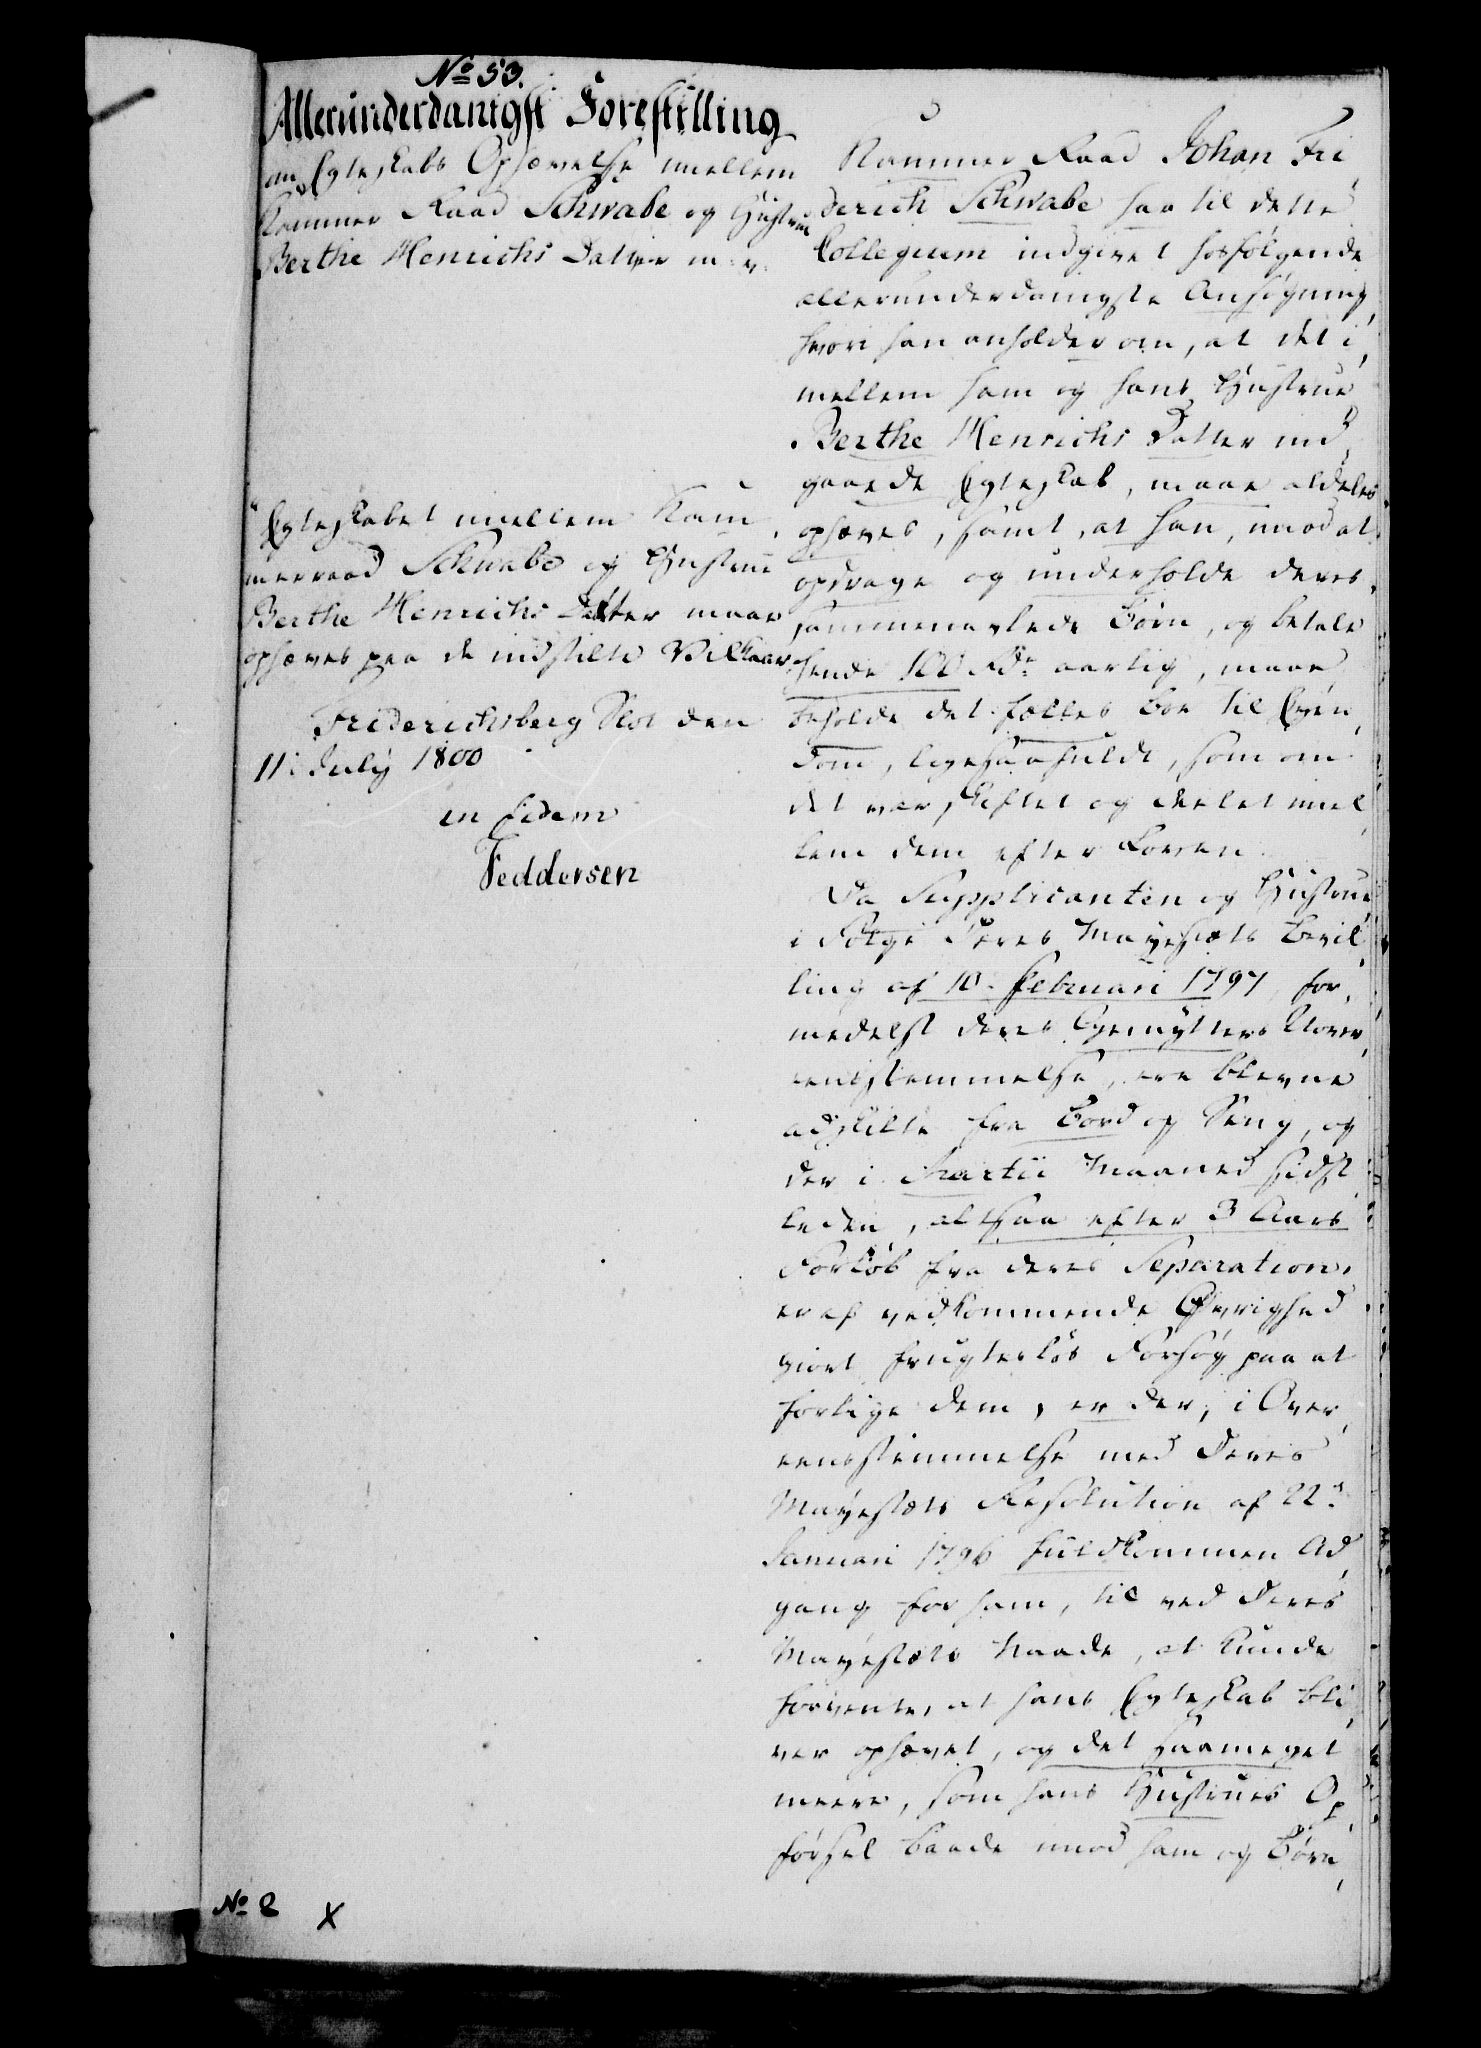 No 53.
Allerunderdanigst Forestilling
om Egteskabs Ophævelse mellem
Kammer Raad Schwabe og Hustrue
Berthe Henrichs Datter m: v:
"Egteskabet mellem Kam-
merraad Schwabe og Hustrue
Berthe Henrichs Datter maae
ophæves paa de indstilte Vilkaar
Friderichsberg Slot den
11: July 1800
in fidem
Feddersen
Kammer Raad Johan Fri-
derich Schwabe har til dette
Collegium indgivet hosfølgende
allerunderdanigste Ansøgning,
hvori han anholder om, at det i-
mellem ham og hans Hustrue
Berthe Henrichs Datter ind-
gaaede Egteskab, maae aldeles
ophæves, samt, at han, imod at
opdrage og underholde deres
sammenavlede Børn, og betale
hende 100 Rdr aarlig, maae
beholde det fælles Boe til Eyen-
dom, ligesaafuldt, som om
det var skiftet og deelet mel-
lem dem efter Loven.
Da Supplicanten og Hustrue
i Følge Deres Mayestæts Bevil-
ling af 10. Februari 1797, for-
medelst deres Gemytters Uover-
eensstemmelse, ere blevne
adskilte fra Bord og Seng, og
der i Martii Maaned sidst-
leden, altsaa efter 3 Aars
Forløb fra deres Separation,
er af vedkommende Øvrighed
giort frugtesløs Forsøg paa at
forlige dem, er der, i Over-
eensstemmelse med Deres
Mayestæts Resolution af 22de
Januari 1796 fuldkommen Ad-
gang for ham, til ved Deres
Mayestæts Naade, at kunde
forvente, at hans Egteskab bli-
ver ophævet, og det saameget
meere, som hans Hustrues Op-
førsel baade imod ham og Børn-
No 2 X